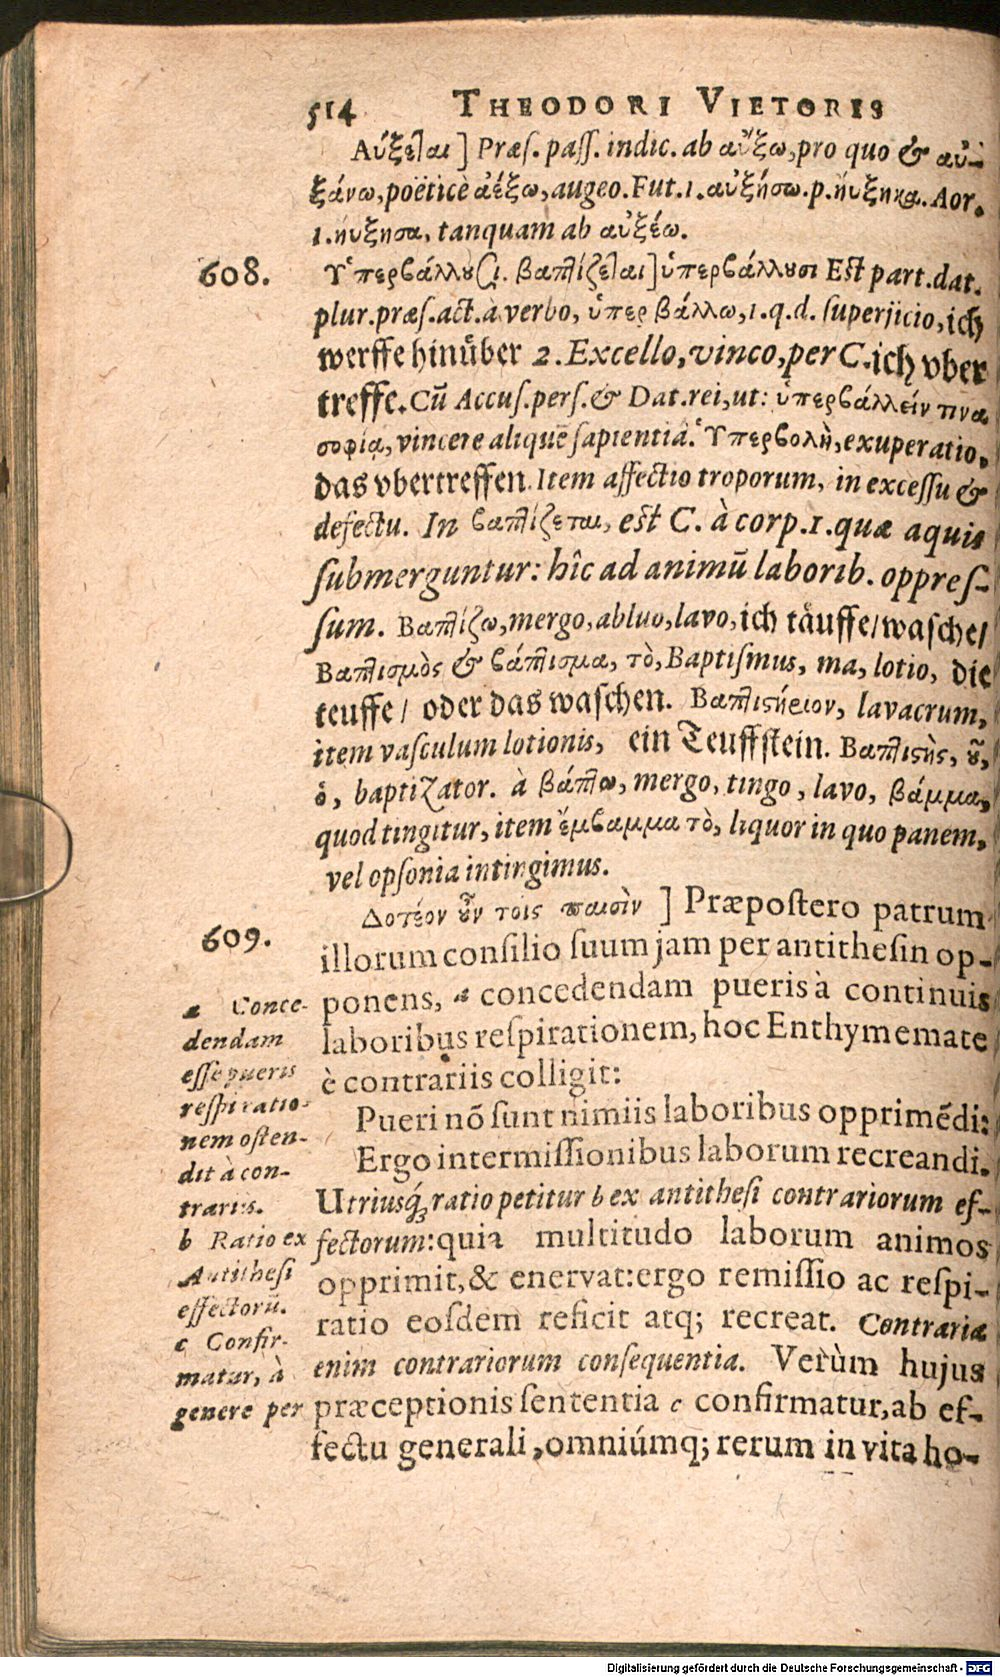 514 THEODORI VIETORIS
Αὔξεται] Præs. pass. indic. ab αὔξω, pro quo & αὐ-
ξάνω, poëticè ἀέξω, augeo. Fut. 1. αὐξήσω. p. ηὔξηκα. Aor.
1. ηὔξησα, tanquam ab αὐξέω.
608. Ὑπερβάλλουσι. βαπτίζεται] ὑπερβάλλουσι Est part. dat.
plur. præs. act. à verbo, ὑπερβάλλω, 1. q. d. superjicio, ich
werffe hinüber 2. Excello, vinco, per C. ich vber
treffe. Cū Accus. pers. & Dat. rei, ut: ὑπερβάλλειν τινα
σοφίᾳ, vincere aliquē sapientiâ. Ὑπερβολὴ, exuperatio,
das vbertreffen. Item affectio troporum, in excessu &
defectu. In βαπτίζεται, est C. à corp. 1. quæ aquis
submerguntur: hîc ad animū laborib. oppres-
sum. Βαπτίζω, mergo, abluo, lavo, ich täuffe/ wasche/
Βαπτισμὸς & βάπτισμα, τὸ, Baptismus, ma, lotio, die
teuffe/ oder das waschen. Βαπτιστήριον, lavacrum,
item vasculum lotionis, ein Teuffstein. Βαπτιστὴς, οῦ,
ὁ, baptizator. à βάπτω, mergo, tingo, lavo, βάμμα,
quod tingitur, item ἔμβαμμα τὸ, liquor in quo panem,
vel opsonia intingimus.
609. Δοτέον οὖν τοῖς παισὶν ] Præpostero patrum
illorum consilio suum jam per antithesin op-
ponens, a concedendam pueris à continuis
laboribus respirationem, hoc Enthymemate
è contrariis colligit:
Pueri nō sunt nimiis laboribus opprimēdi:
Ergo intermissionibus laborum recreandi.
Utriusq; ratio petitur b ex antithesi contrariorum ef-
fectorum: quia multitudo laborum animos
opprimit, & enervat: ergo remissio ac respi-
ratio eosdem reficit atq; recreat. Contraria
enim contrariorum consequentia. Verùm hujus
præceptionis sententia c confirmatur, ab ef-
fectu generali, omniúmq; rerum in vita ho-
a Conce-
dendam
esse pueris
respiratio-
nem osten-
dit à con-
trariis.
b Ratio ex
Antithesi
effectorū.
c Confir-
matur, à
genere per
Digitalisierung gefördert durch die Deutsche Forschungsgemeinschaft - DFG